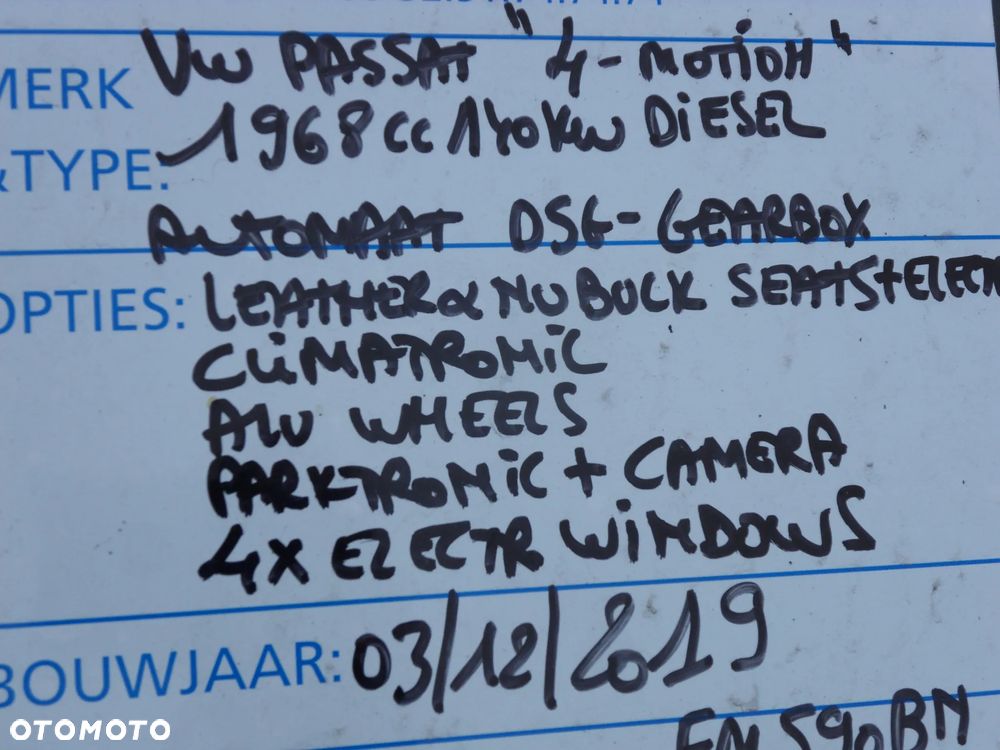 MERK VW PASSAT "4-MOTION"
&TYPE: 1968cc 140KW DIESEL
AUTOMAAT DSG-GEARBOX
OPTIES: LEATHER & NUBUCK SEATS + ELECTR
CLIMATRONIC
ALU WHEELS
PARKTRONIC + CAMERA
4X ELECTR WINDOWS
BOUWJAAR: 03/12/2019
OTOMOTO